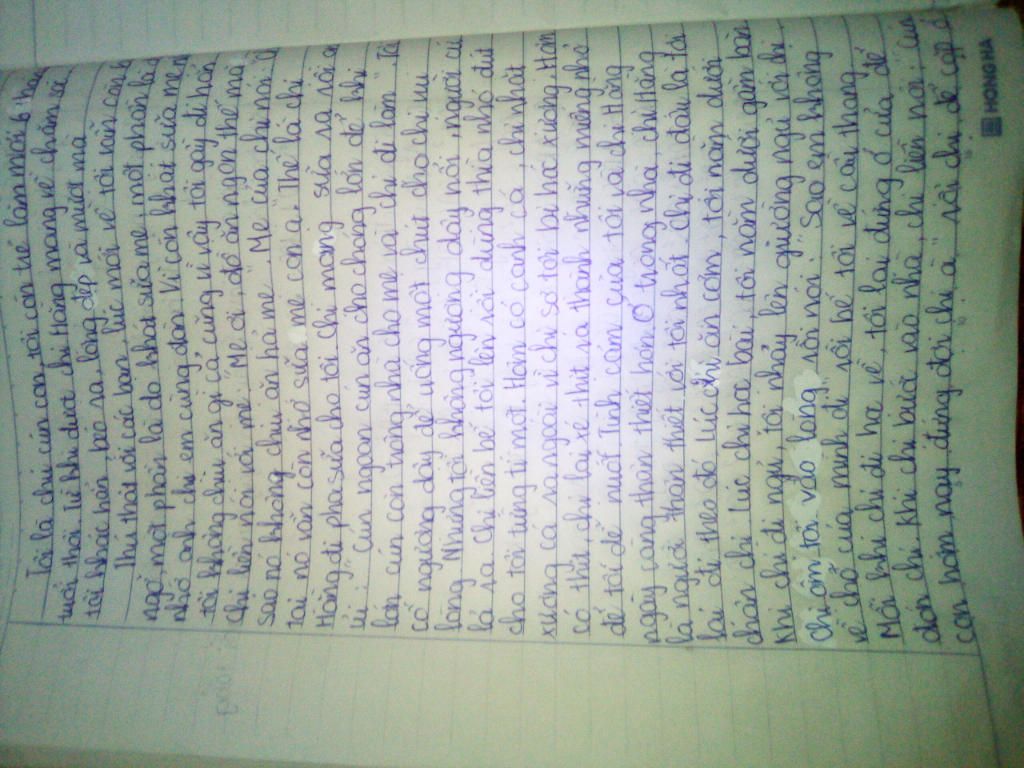 Tôi là chú cún con, tôi còn trẻ lắm mới 6 thá
tuổi thôi. Từ khi được chị Hồng mang về chăm sóc
tôi khác hẳn béo ra lông đẹp và mượt mà
Thú thật với các bạn, lúc mới về tôi vẫn còn
ngỡ một phần là do khát sữa mẹ, một phần là
nhớ anh chị em cùng đàn. Vì còn khát sữa mẹ n
tôi không chịu ăn gì cả cũng vì vậy tôi gầy đi hẳn
chị liền nói với mẹ: "Mẹ ơi, đồ ăn ngon thế mà
sao nó không chịu ăn hả mẹ". Mẹ của chị nói
tại nó vẫn còn nhớ sữa mẹ con ạ". Thế là chị
Hồng đi pha sữa cho tôi. Chị mang sữa ra rồi
ủi: "Cún ngoan cún ăn cho chóng lớn để khi
lớn cún còn trông nhà cho mẹ và chị đi làm". Tôi
cố ngượng dậy để uống một chút cho chị vui
lòng. Nhưng tôi không ngượng dậy nổi, người cứ
lả ra. Chị liền bế tôi lên rồi dùng thìa nhỏ đút
cho tôi từng tí một. Hôm có canh cá, chị nhặt
xương cá ra ngoài vì chị sợ tôi bị hóc xương. Hôm
có thịt chị lại xé thịt ra thành những miếng nhỏ
để tôi dễ nuốt. Tình cảm của tôi và chị Hồng
ngày càng thân thiết hơn. Ở trong nhà, chị Hồng
là người thân thiết với tôi nhất. Chị đi đâu là tôi
lại đi theo đó. Lúc chị ăn cơm, tôi nằm dưới
chân chị. Lúc chị học bài, tôi nằm dưới gầm bàn
Khi chị đi ngủ, tôi nhảy lên giường ngủ với chị
chị ôm tôi vào lòng rồi nói: "Sao em không
về chỗ của mình đi" rồi bế tôi về cầu thang
Mỗi khi chị đi học về, tôi lại đứng ở cửa để
đón chị. Khi chị bước vào nhà, chị liền nói, "cún
con hôm nay đứng đợi chị à", rồi chị để cặp ở
HONG HA